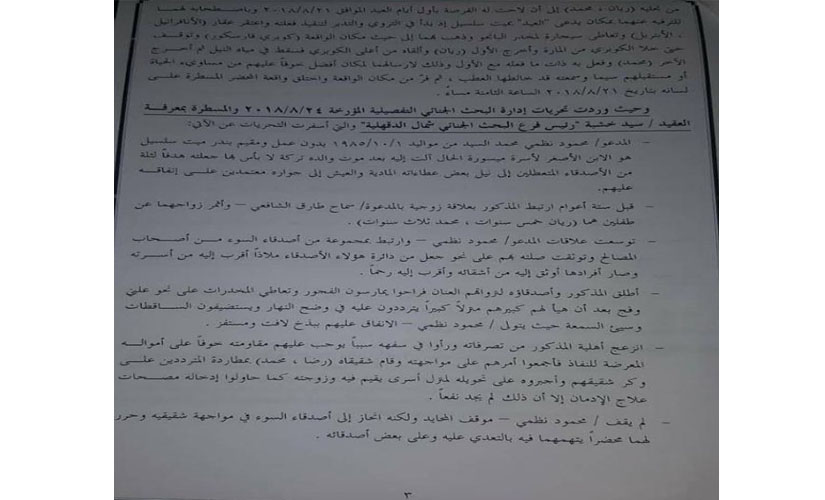 من نجليه (ريان ، محمد) إلى أن لاحت له الفرصة بأول أيام العيد الموافق ٢٠١٨/٨/٢١ وباصطحابه لهما
للترفيه عنهما بمكان يدعى "العبد" بميت سلسيل إذ بدأ في التروي والتدبر لتنفيذ فعلته واحتقر عقار (والأنافرانيل
، الأبتريل) وتعاطى سيجارة لمخدر البانجو وذهب بهما إلى حيث مكان الواقعة (كوبري فارسكور) وتوقف
حتى خلا الكوبري من المارة وأخرج الأول (ريان) وألقاه من أعلى الكوبري فسقط في مياه النيل ثم أخرج
الآخر (محمد) وفعل به ذات ما فعله مع الأول وذلك لإرسالهما لمكان أفضل خوفاً عليهم من مساوىء الحياة
أو مستقبلهم سيما وسمعته قد خالطها العطب ، ثم فرّ من مكان الواقعة واختلق واقعة المحضر المسطرة على
لسانه بتاريخ ٢٠١٨/٨/٢١ الساعة الثامنة مساءً .
وحيث وردت تحريات إدارة البحث الجنائي التفصيلية المؤرخة ٢٠١٨/٨/٢٤ والمسطرة بمعرفة
العقيد / سيد خشبة "رئيس فرع البحث الجنائي شمال الدقهلية" والتي أسفرت التحريات عن الآتي:
– المدعو/ محمود نظمي محمد السيد من مواليد ١٩٨٥/١٠/١ بدون عمل ومقيم بندر ميت سلسيل
هو الابن الأصغر لأسرة ميسورة الحال آلت إليه بعد موت والده تركة لا بأس بها جعلته هدفاً لثلة
من الأصدقاء المتعطلين إلى نيل بعض عطاءاته المادية والعيش إلى جواره معتمدين على إنفاقه
عليهم.
– قبل ستة أعوام ارتبط المذكور بعلاقة زوجية بالمدعوة/ سماح طارق الشافعي – وأثمر زواجهما عن
طفلين هما (ريان خمس سنوات ، محمد ثلاث سنوات) .
– توسعت علاقات المدعو/ محمود نظمي – وارتبط بمجموعة من أصدقاء السوء من أصحاب
المصالح وتوثقت صلته بهم على نحو جعل من دائرة هؤلاء الأصدقاء ملاذاً أقرب إليه من أسرته
وصار أفرادها أوثق إليه من أشقائه وأقرب إليه رحماً .
– أطلق المذكور وأصدقاؤه لنزواتهم العنان فراحوا يمارسون الفجور وتعاطي المخدرات على نحو علني
وفج بعد أن هيأ لهم كبيرهم منزلاً كبيراً يترددون عليه في وضح النهار ويستضيفون الساقطات
وسيئ السمعة حيث يتولى / محمود نظمي – الانفاق عليهم ببذخ لافت ومستفز .
– انزعج أهلية المذكور من تصرفاته ورأوا في سفهه سبباً يوجب عليهم مقاومته خوفاً على أمواله
المعرضة للنفاذ فأجمعوا أمرهم على مواجهته وقام شقيقاه (رضا ، محمد) بمطاردة المترددين على
وكر شقيقهم وأجبروه على تحويله لمنزل أسرى يقيم فيه وزوجته كما حاولوا إدخاله مصحات
علاج الإدمان إلا أن ذلك لم يجد نفعاً .
– لم يقف / محمود نظمي – موقف المحايد ولكنه انحاز إلى أصدقاء السوء في مواجهة شقيقيه وحرر
لهما محضراً يتهمهما فيه بالتعدي عليه وعلى بعض أصدقائه .
٣